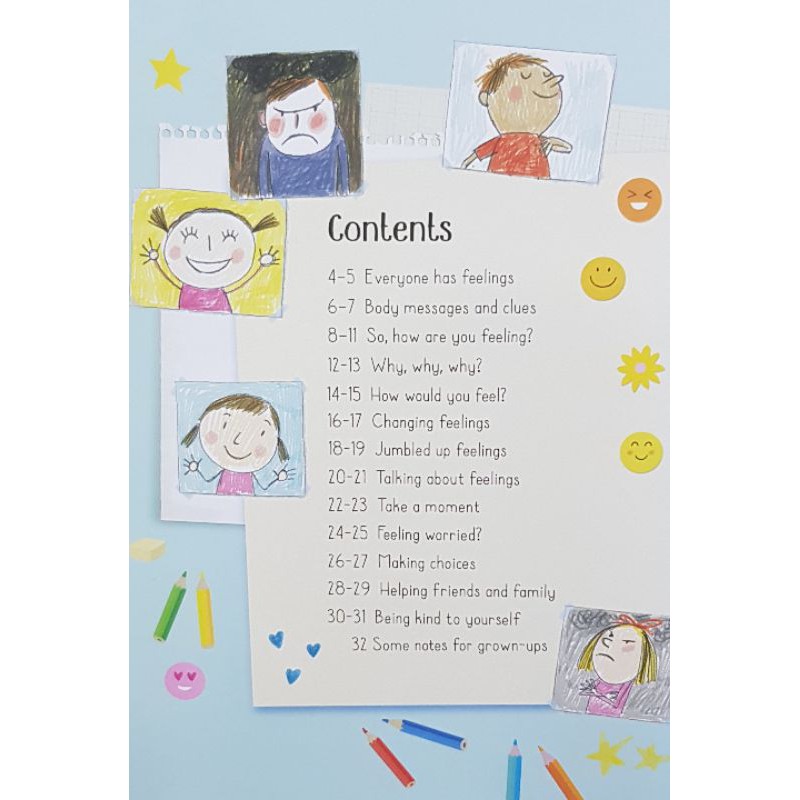 Contents
4-5 Everyone has feelings
6-7 Body messages and clues
8-11 So, how are you feeling?
12-13 Why, why, why?
14-15 How would you feel?
16-17 Changing feelings
18-19 Jumbled up feelings
20-21 Talking about feelings
22-23 Take a moment
24-25 Feeling worried?
26-27 Making choices
28-29 Helping friends and family
30-31 Being kind to yourself
32 Some notes for grown-ups